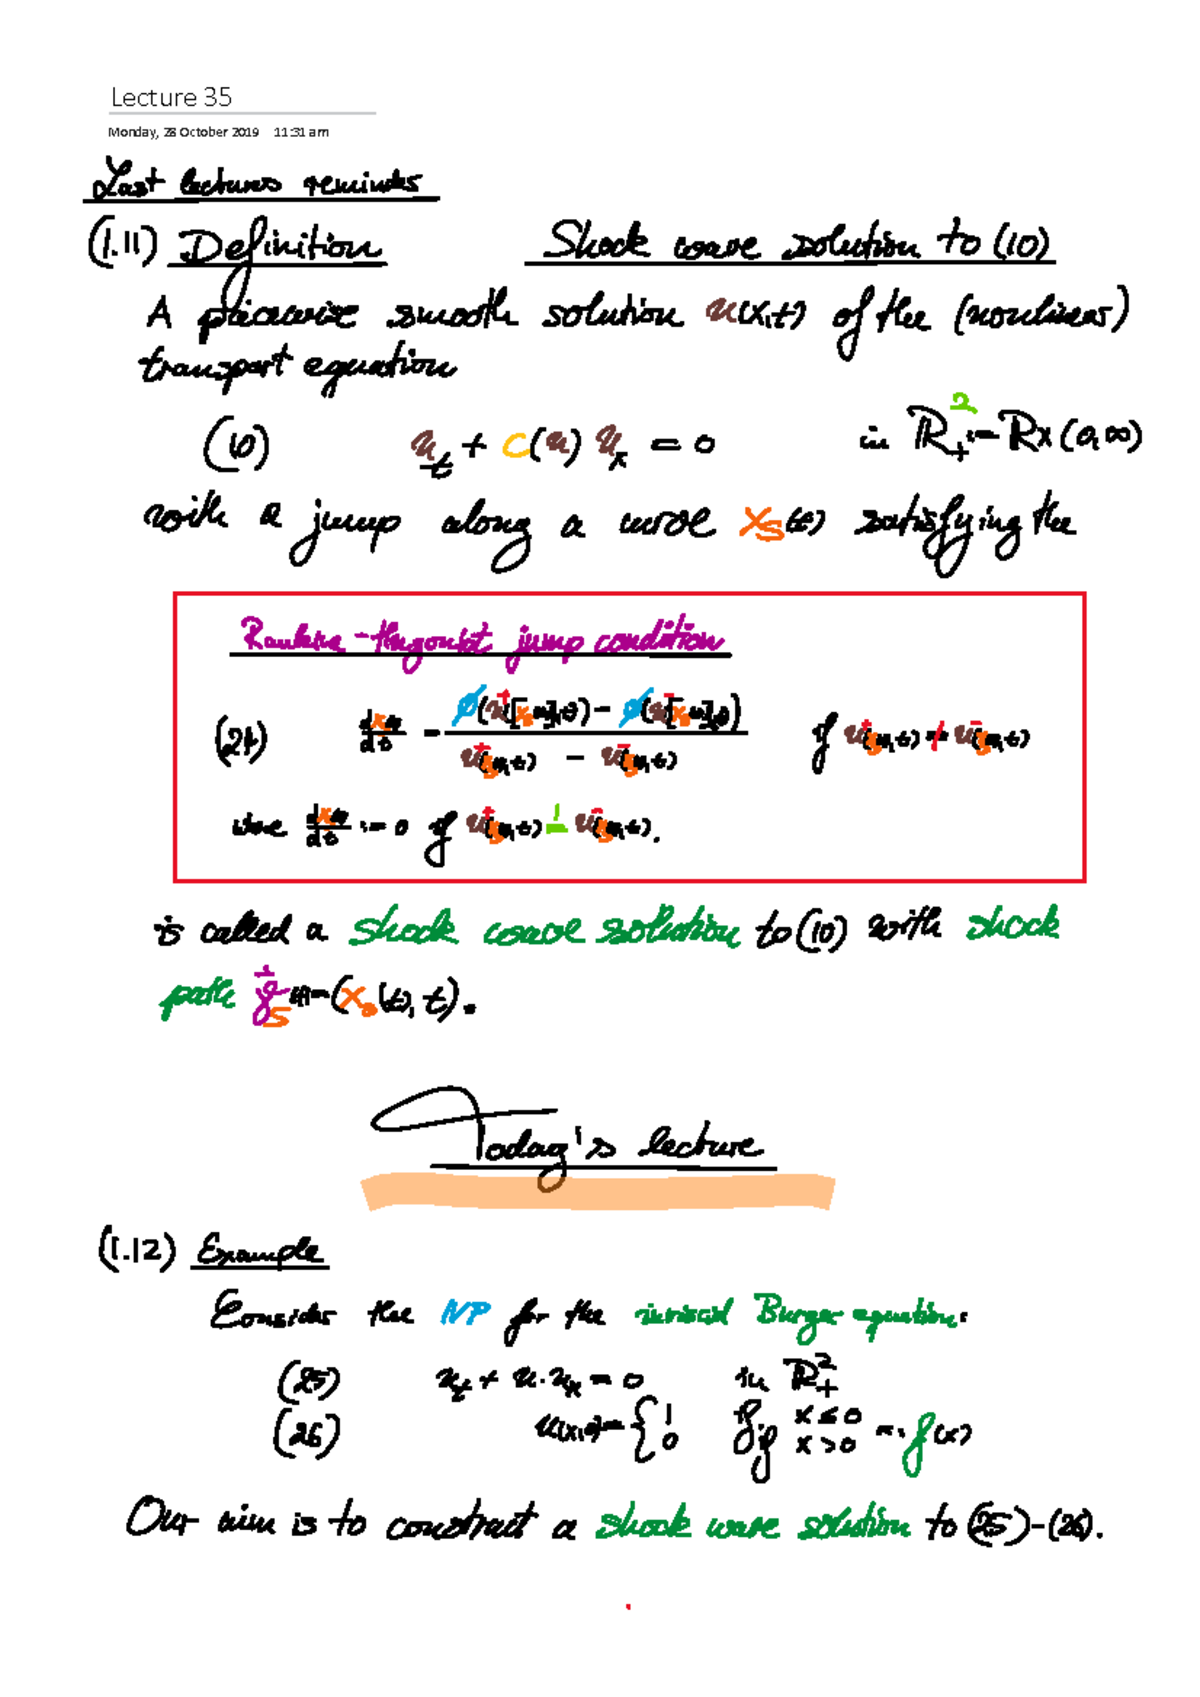 Lecture 35
Monday, 28 October 2019 11:31 am
Last lectures reminder
(1.11) Definition Shock wave solution to (10)
A piecewise smooth solution u(x,t) of the (nonlinear)
transport equation
(10) u_t + c(u) u_x = 0 in ℝ²₊ := ℝ×(0,∞)
with a jump along a curve x_s(t) satisfying the
Rankine-Hugoniot jump condition
(24) dx_s(t)/dt = (ϕ(u⁺[x_s(t),t]) − ϕ(u⁻[x_s(t),t])) / (u⁺(x_s(t),t) − u⁻(x_s(t),t)) if u⁺(x_s(t),t) ≠ u⁻(x_s(t),t)
dx_s(t)/dt := 0 if u⁺(x_s(t),t) = u⁻(x_s(t),t).
is called a shock wave solution to (10) with shock
path = (x_s(t), t).
Today's lecture
(1.12) Example
Consider the IVP for the inviscid Burger equation:
(25) u_t + u·u_x = 0 in ℝ²₊
(26) u(x,0) = { 1 if x ≤ 0
0 if x > 0 =: f(x)
Our aim is to construct a shock wave solution to (25)-(26).